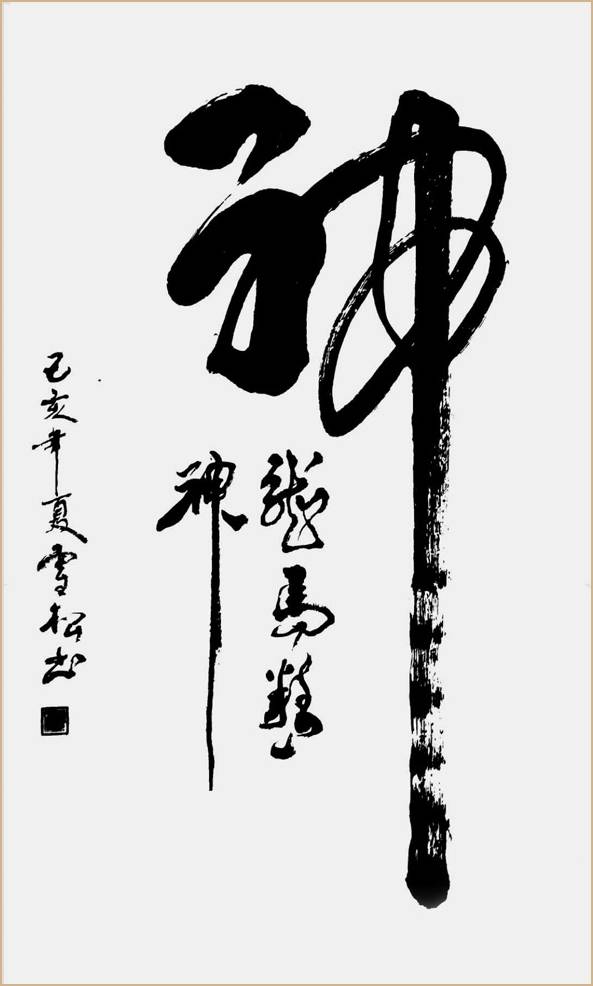 神
龍馬精
神
己亥年夏雪松书